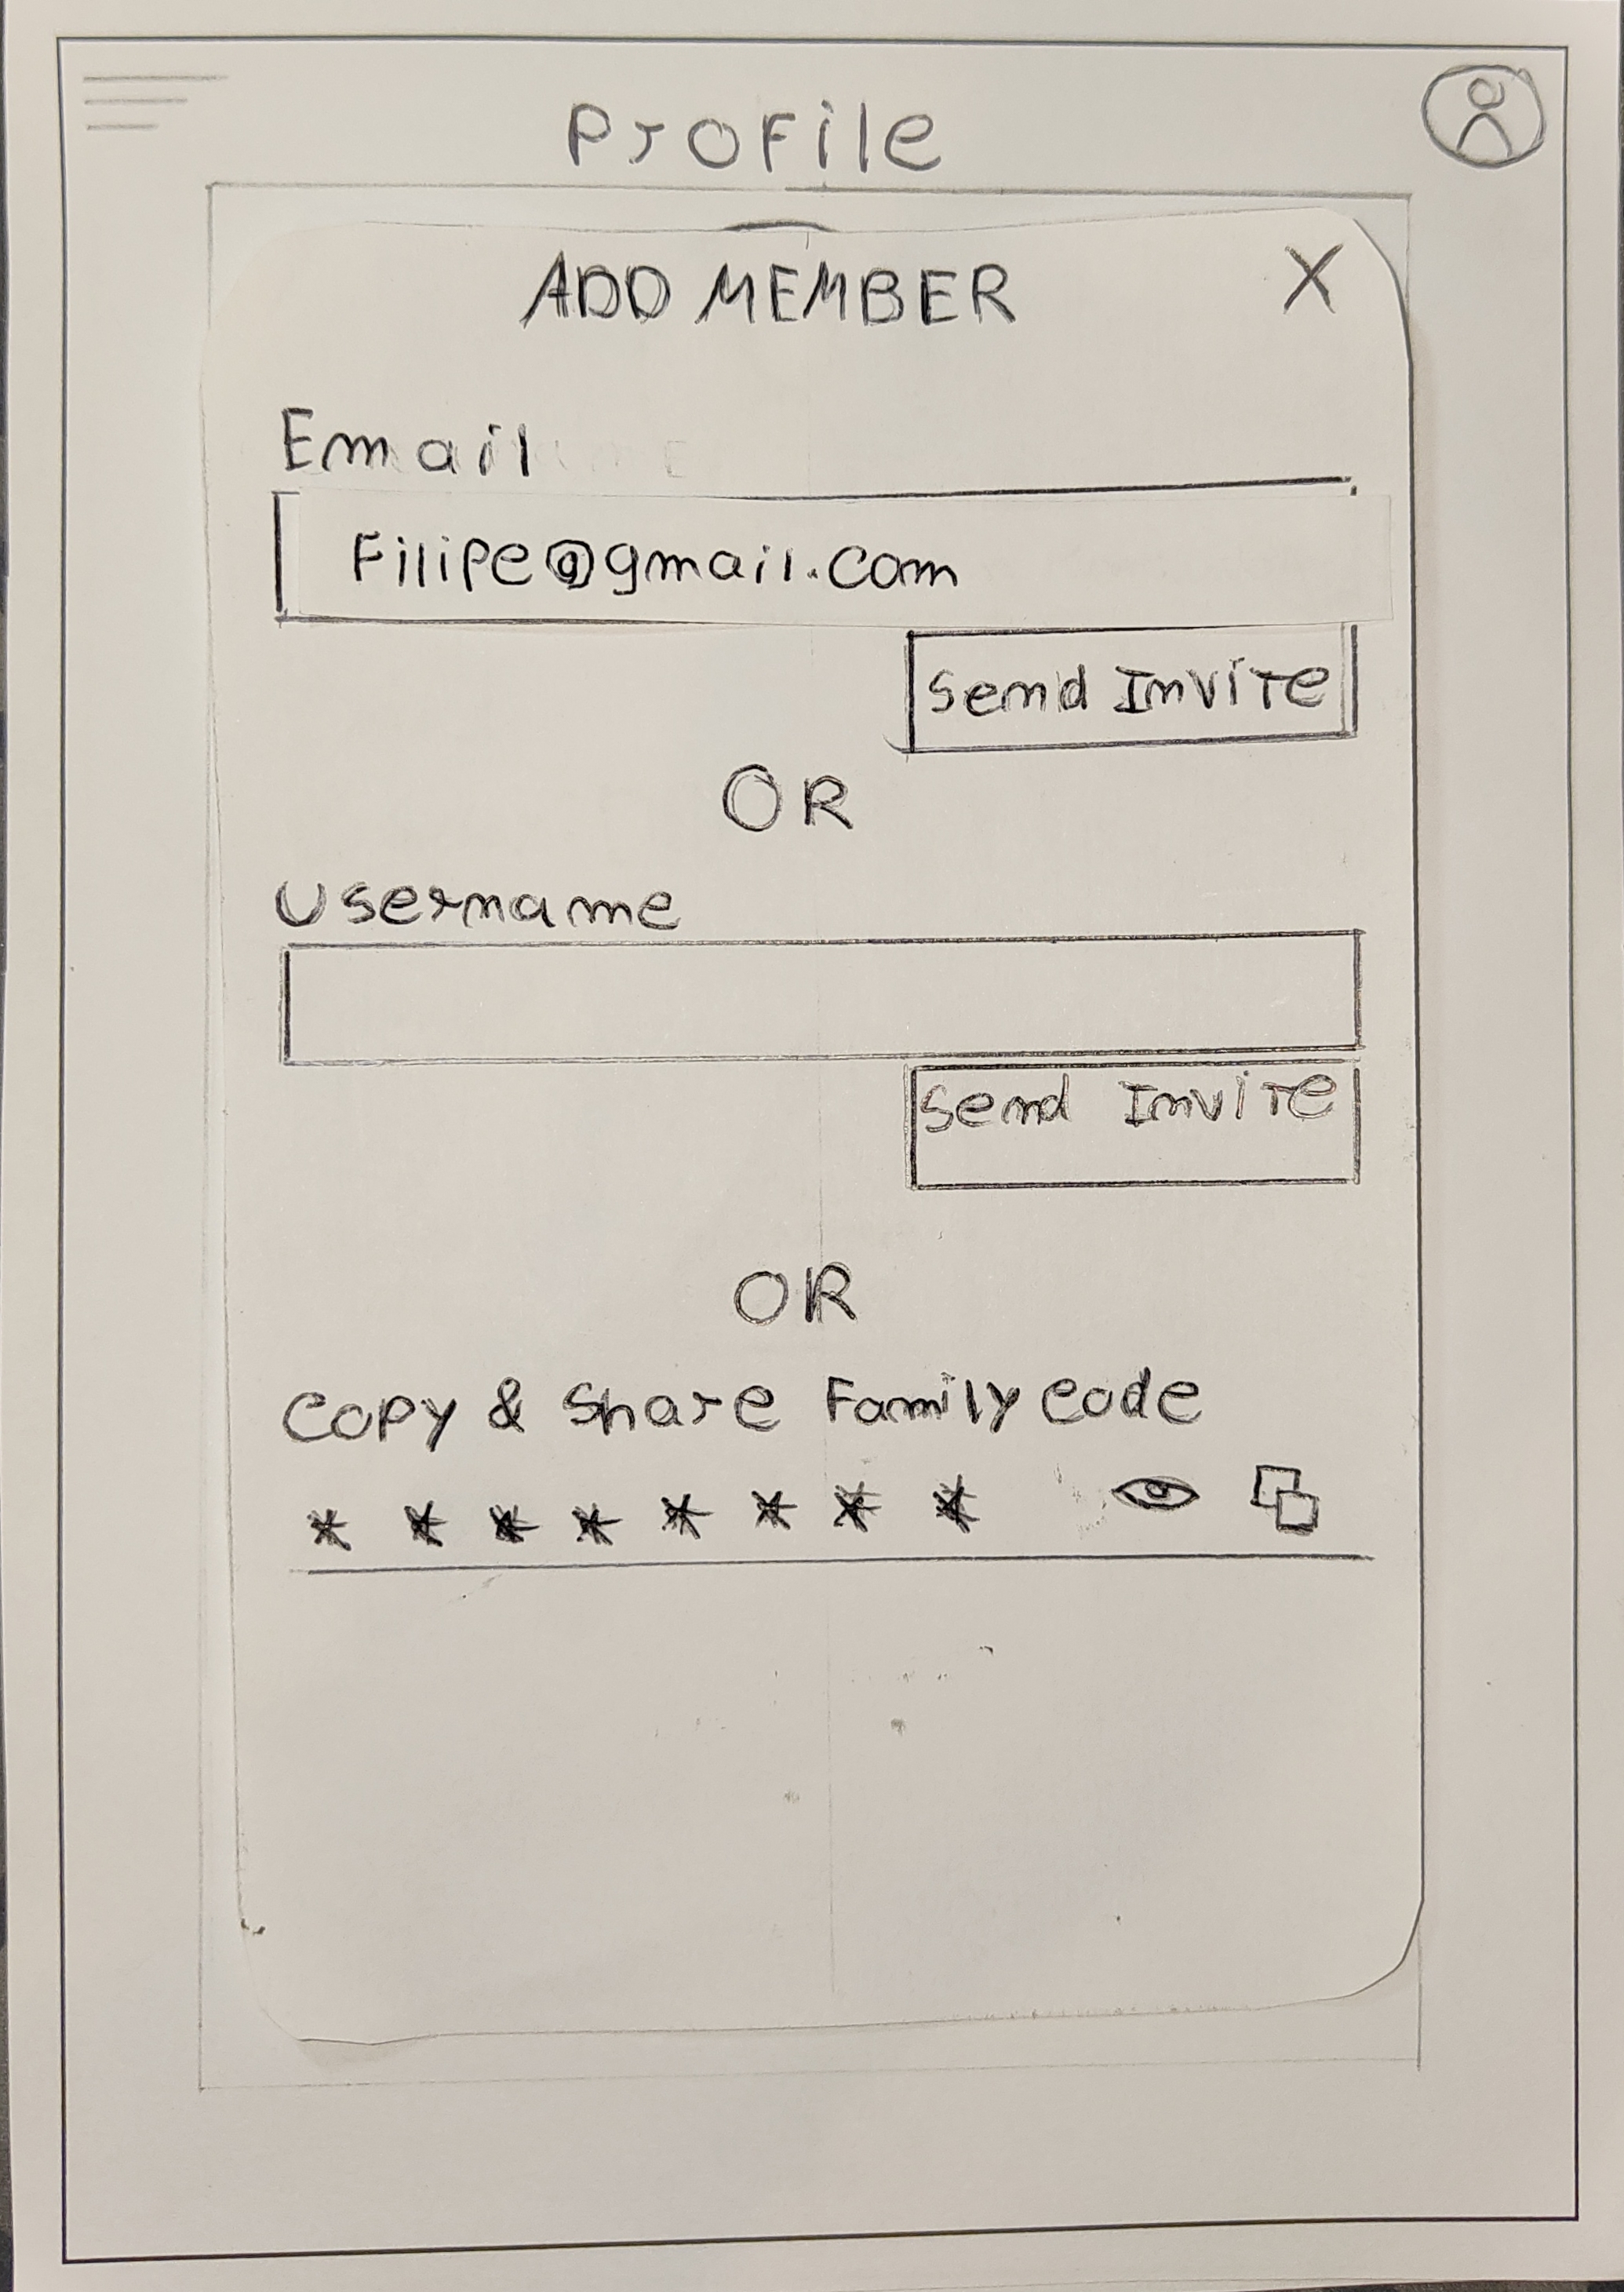 Profile
ADD MEMBER X
Email
Filipe@gmail.com
Send Invite
OR
Username
Send Invite
OR
Copy & Share Family code
* * * * * * * *